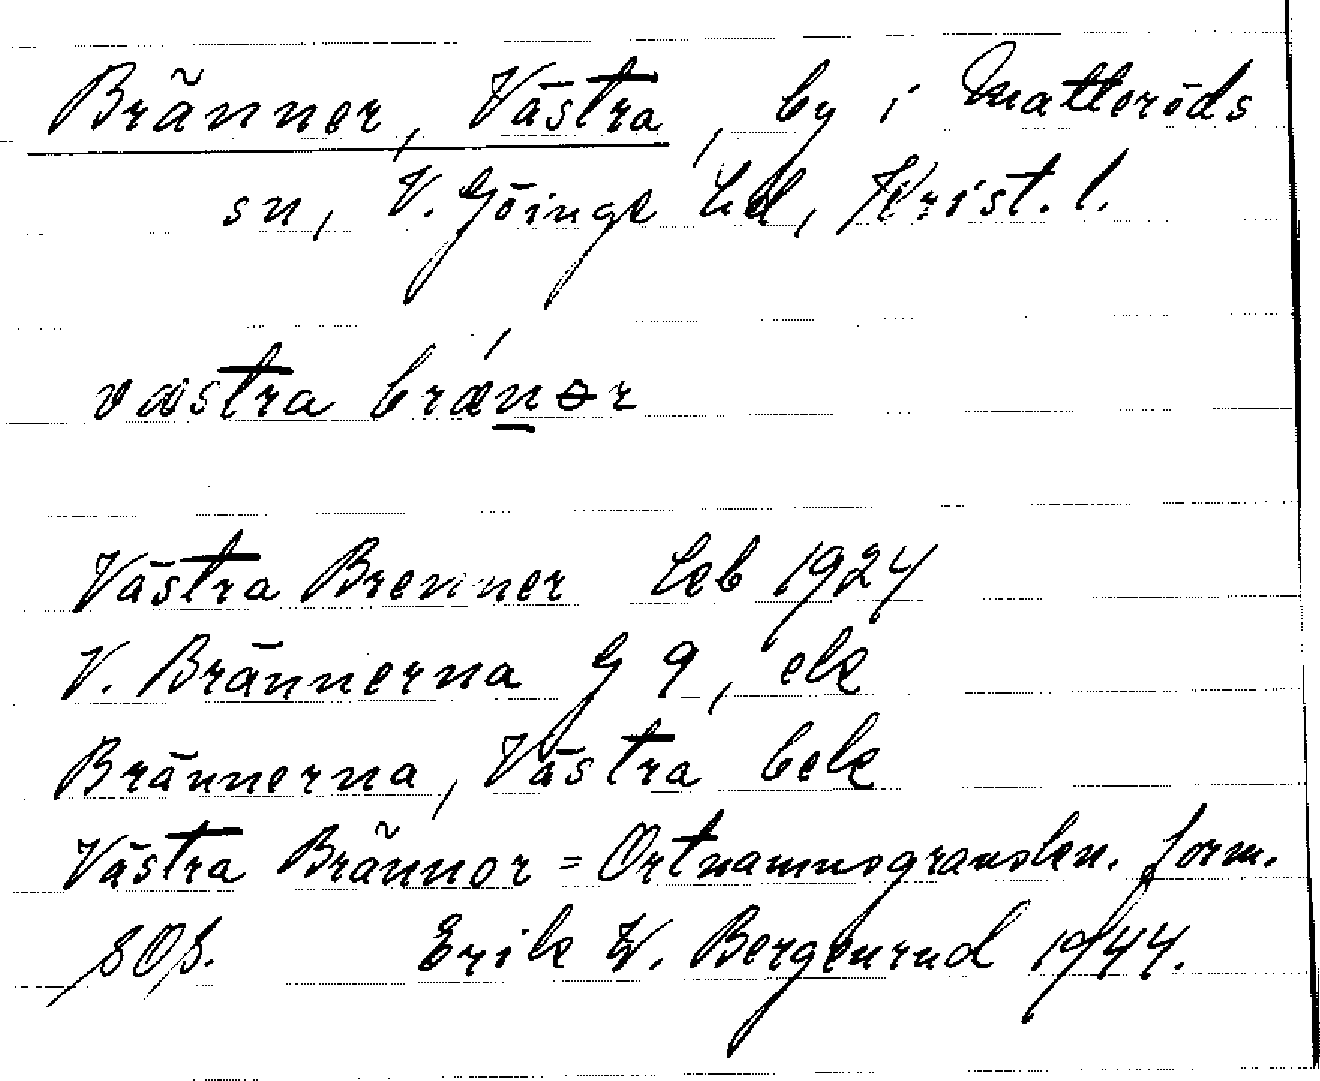 Bränner, Västra, by i Matteröds
sn, V. Göinge hd, Krist. l.
væstra brǽn̲ər
Västra Brenner Leb 1924
V. Brännerna G 9, ek
Brännerna, Västra bek
Västra Brännor = Ortnamnsgranskn. form.
SOf. Erik W. Bergenrud 1944.